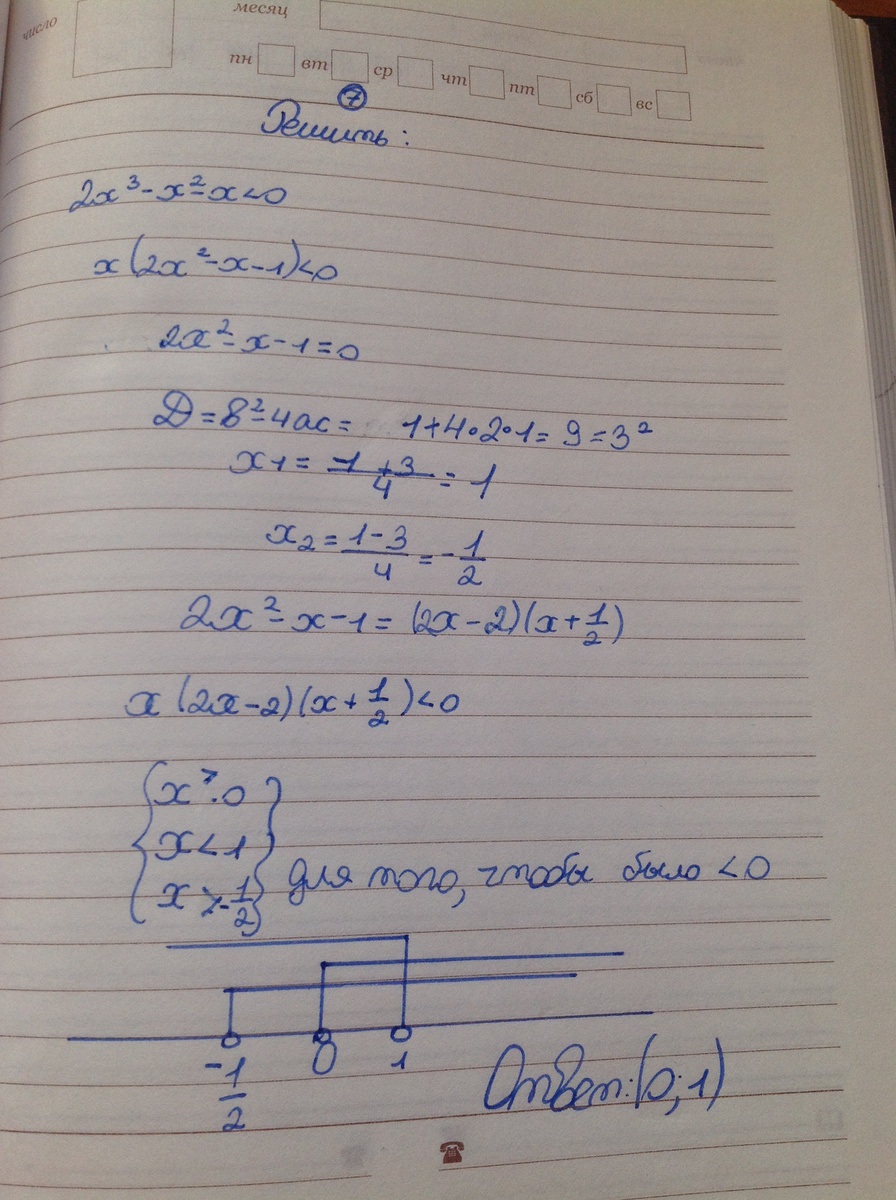 число
месяц
пн вт ср чт пт сб вс
7
Решить:
2x³-x²-x<0
x(2x²-x-1)<0
2x²-x-1=0
D=в²-4ac= 1+4•2•1=9=3²
x1=1+3/4=1
x2=1-3/4=-1/2
2x²-x-1=(2x-2)(x+1/2)
x(2x-2)(x+1/2)<0
x>0
x<1
x>-1/2 для того, чтобы было <0
-1/2 0 1
Ответ:(0;1)